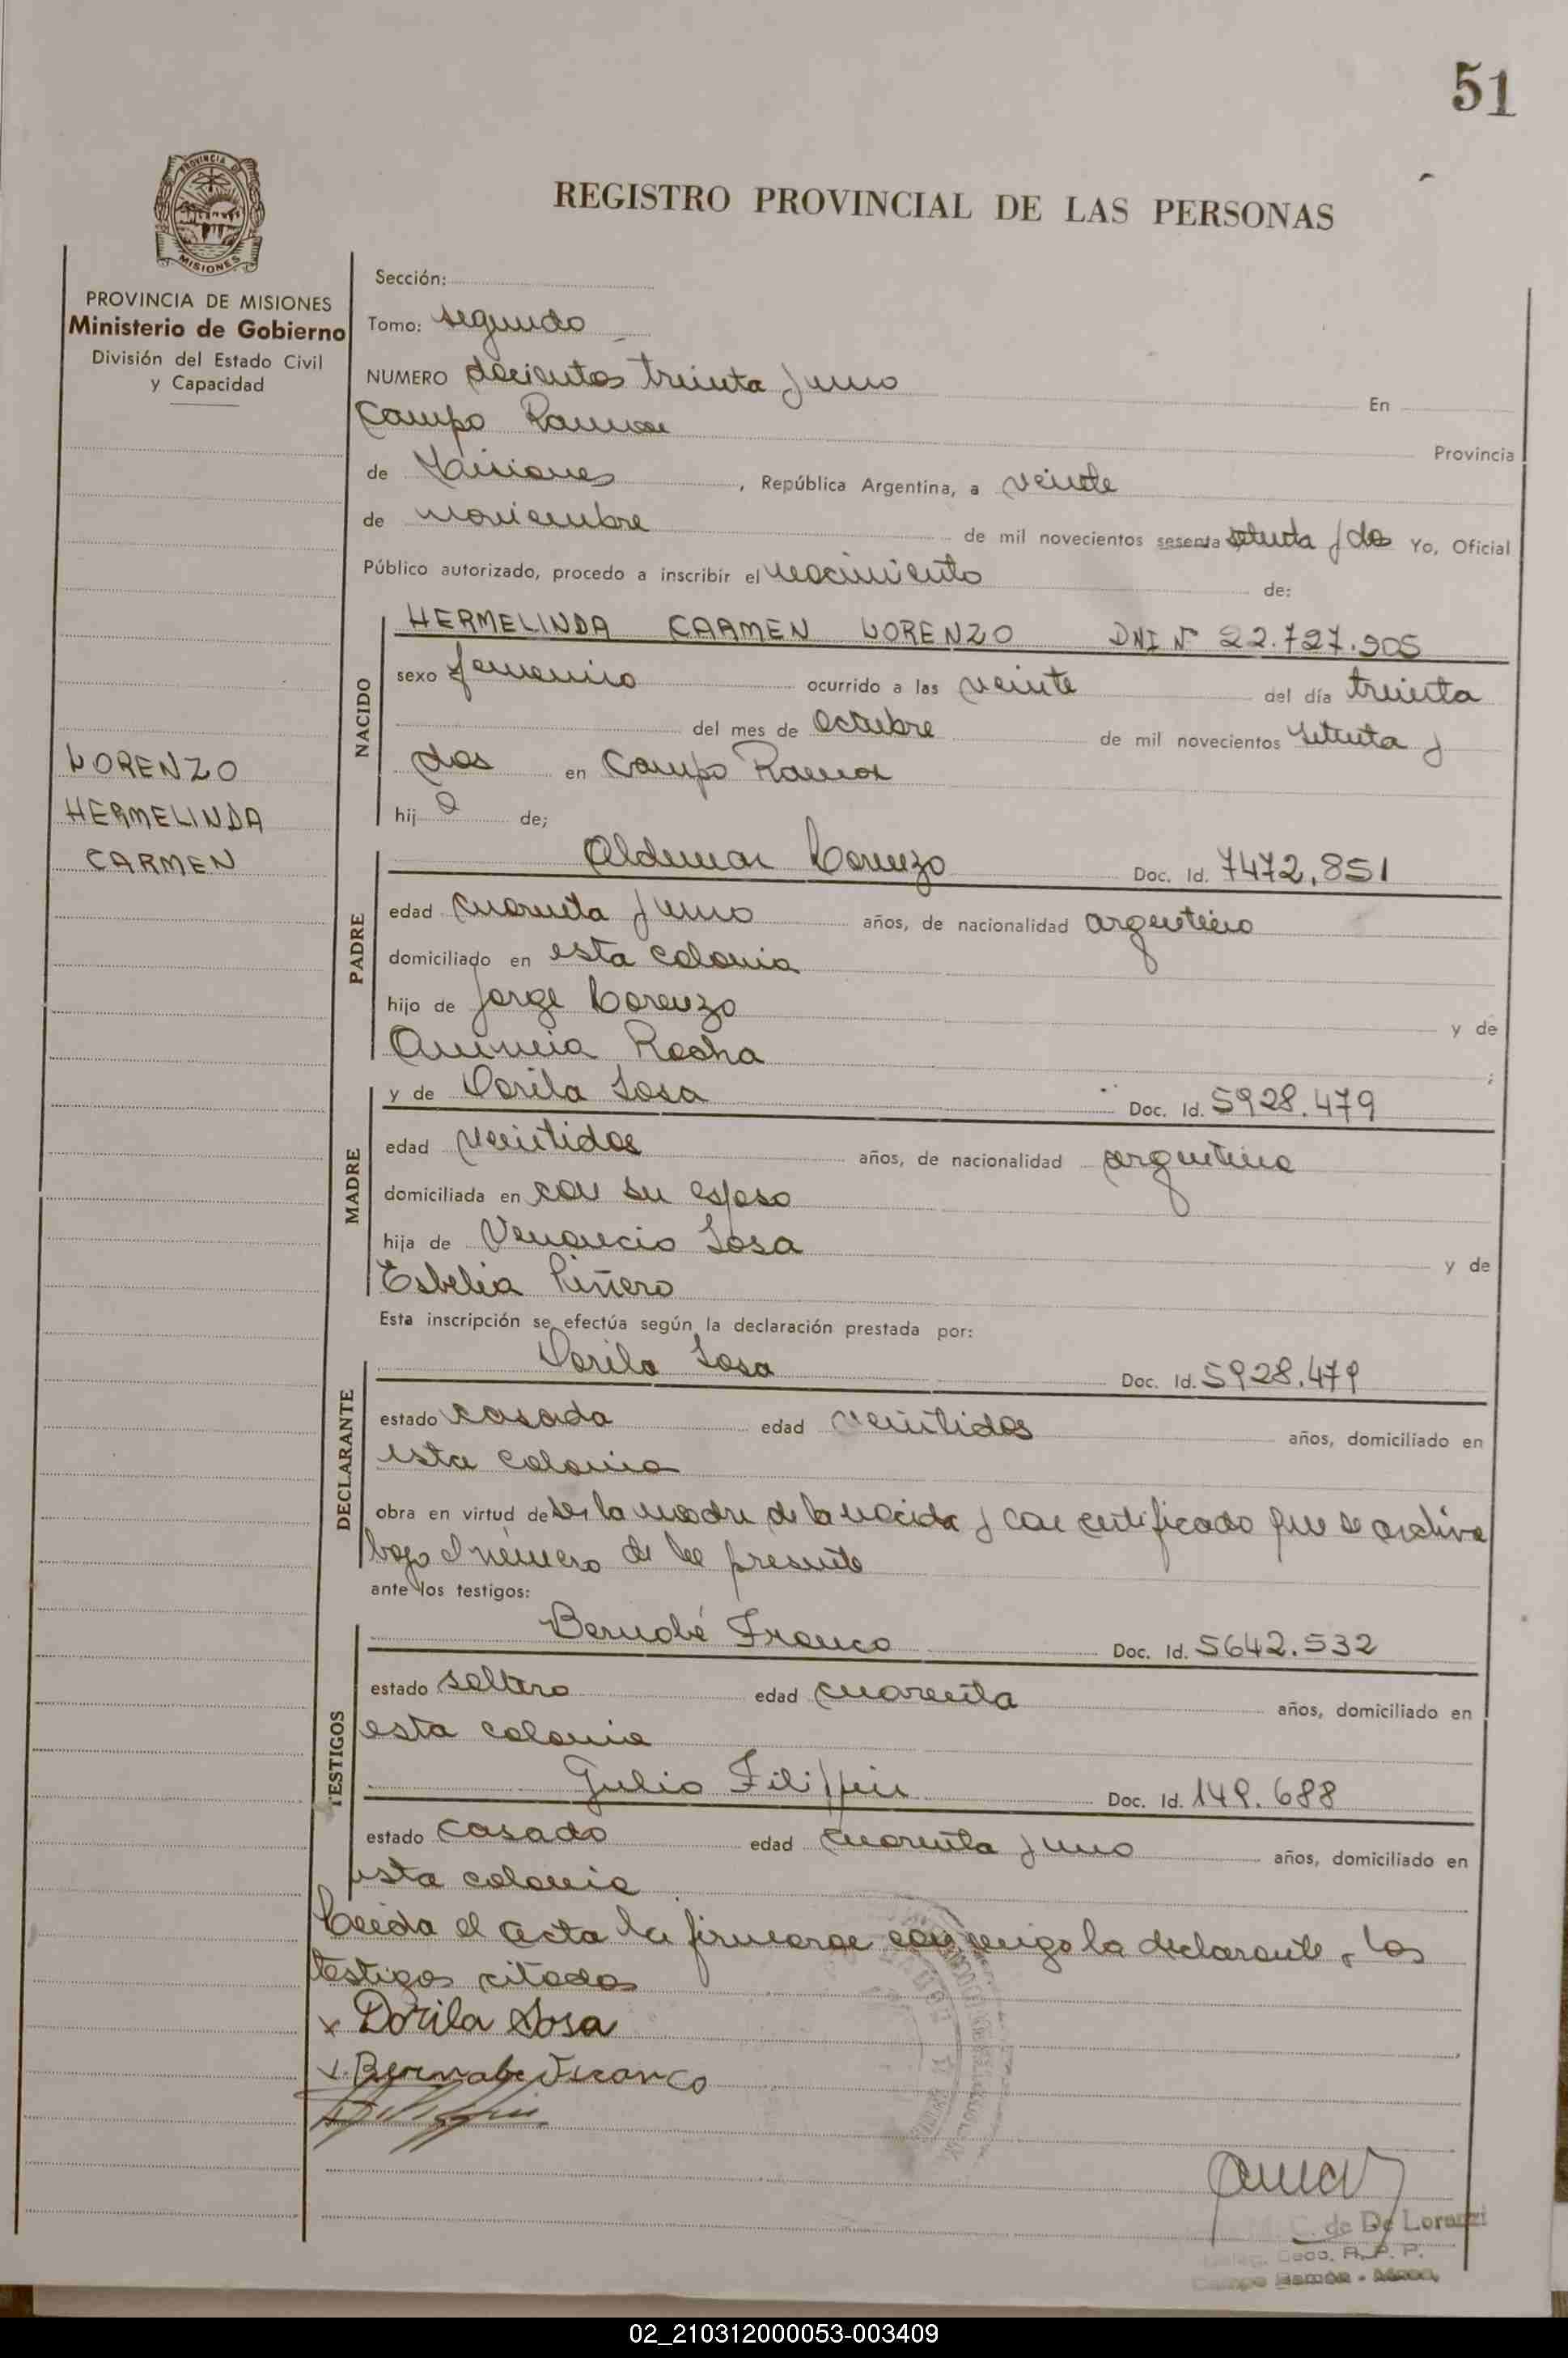 51
PROVINCIA DE
MISIONES
REGISTRO PROVINCIAL DE LAS PERSONAS
PROVINCIA DE MISIONES
Ministerio de Gobierno
División del Estado Civil
y Capacidad
LORENZO
HERMELINDA
CARMEN
Sección:
Tomo: segundo
NUMERO docientos treinta y uno En
Campo Ramon Provincia
de Misiones, República Argentina, a veinte
de noviembre de mil novecientos sesenta setenta y dos Yo, Oficial
Público autorizado, procedo a inscribir el nacimiento de:
NACIDO
HERMELINDA CARMEN LORENZO DNI Nº 22.727.905
sexo femenino ocurrido a las veinte del día treinta
del mes de octubre de mil novecientos setenta y
dos en Campo Ramon
hij a de;
PADRE
Aldemar Lorenzo Doc. Id. 7472.851
edad cuarenta y uno años, de nacionalidad argentino
domiciliado en esta colonia
hijo de Jorge Lorenzo y de
Rocha ;
MADRE
y de Dorila Sosa Doc. Id. 5928.479
edad veintidos años, de nacionalidad argentina
domiciliada en con su esposo
hija de Venancio Sosa y de
Esbelia Piñero
Esta inscripción se efectúa según la declaración prestada por:
DECLARANTE
Dorila Sosa Doc. Id. 5928.479
estado casada edad veintidos años, domiciliado en
esta colonia
obra en virtud de ser la madre de la nacida y con certificado que se archiva
bajo el número de la presente
ante los testigos:
TESTIGOS
Bernabé Franco Doc. Id. 5642.532
estado soltero edad cuarenta años, domiciliado en
esta colonia
Julio Filippin Doc. Id. 149.688
estado casado edad cuarenta y uno años, domiciliado en
esta colonia
Leida el acta la firmaron conmigo la declarante y los
testigos citados
x Dorila Sosa
x. Bernabe Franco
M. C. de De Lorenzi
Deleg. Seco. R. P. P.
Campo Ramón - Mnes.
02_210312000053-003409